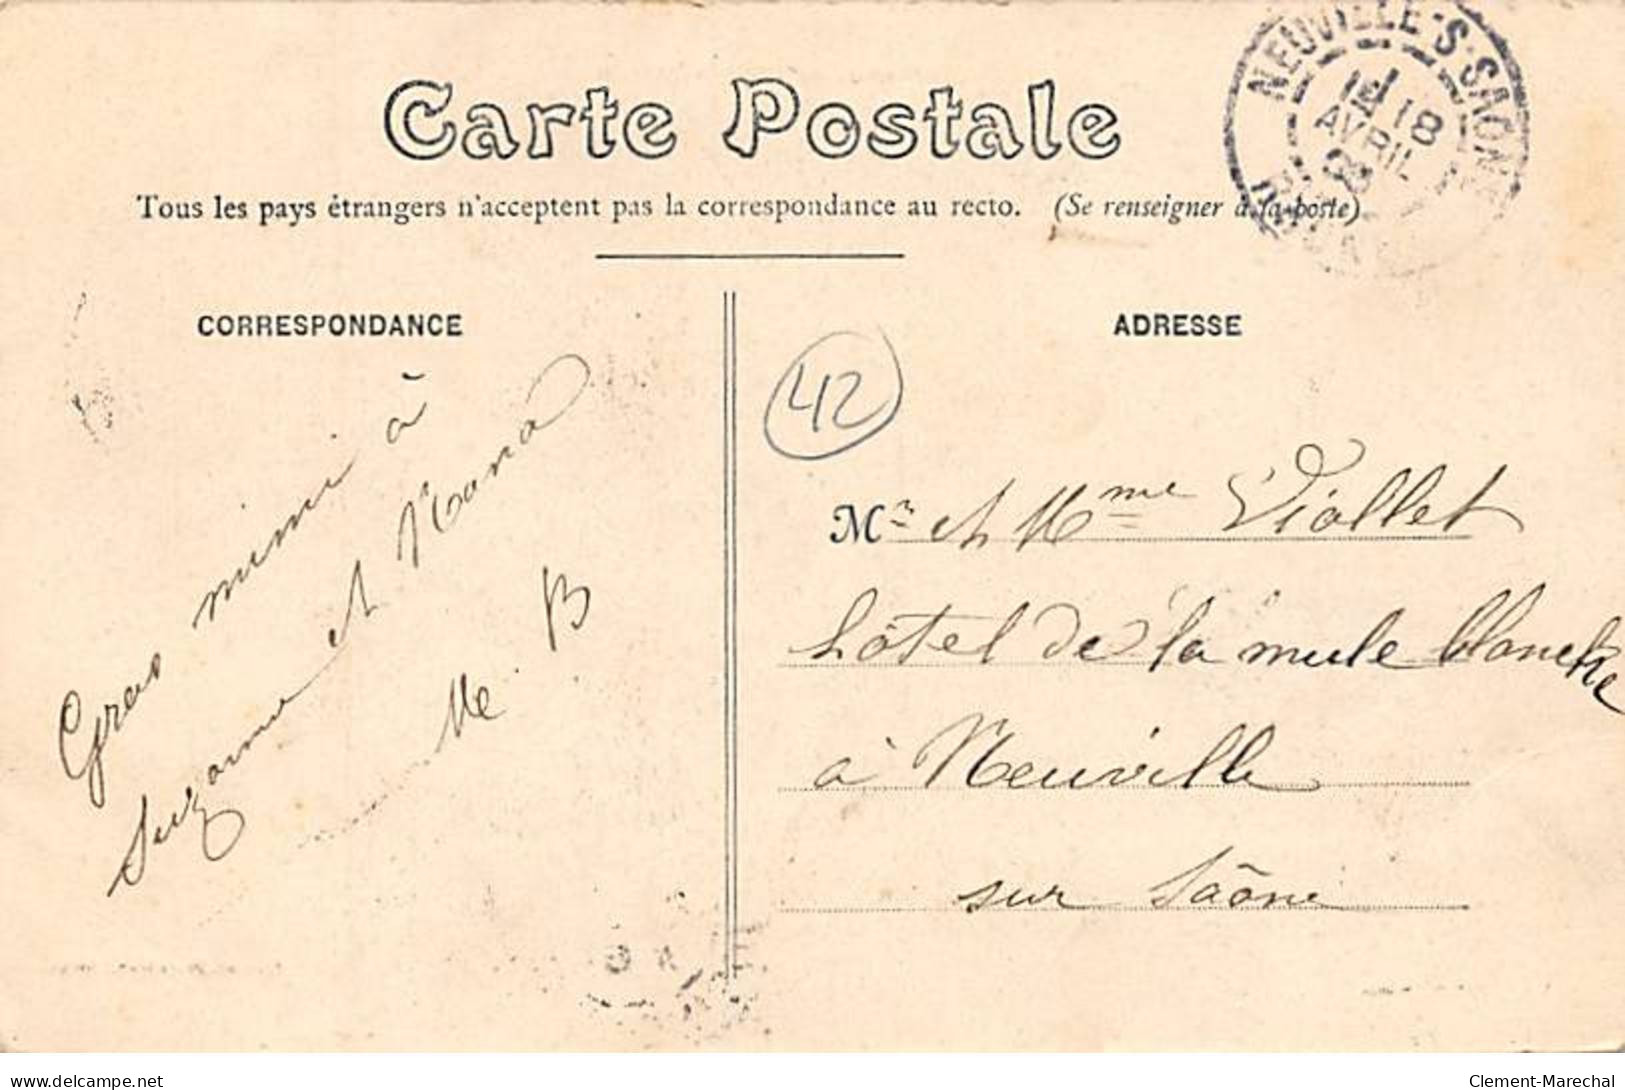 Carte Postale
Tous les pays étrangers n'acceptent pas la correspondance au recto. (Se renseigner à la poste)
NEUVILLE-S-SAONE
18
AVRIL
CORRESPONDANCE
ADRESSE
42
Gros mimi à
Suzanne et Nana
M B
Mr et Mme Viollet
hôtel de la mule blanche
à Neuville
sur Saône
delcampe.net
Clement-Marechal